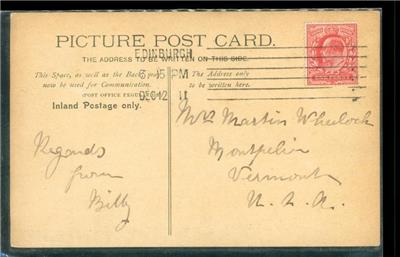 PICTURE POST CARD.
THE ADDRESS TO BE WRITTEN ON THIS SIDE.
EDINBURGH
PM
DEC 12 11
This Space, as well as the Back, may
now be used for Communication.
(POST OFFICE REGULATION)
Inland Postage only.
The Address only
to be written here.
Regards
from
Billy
Mrs Martin Wheelock
Montpelier
Vermont
U. S. A.